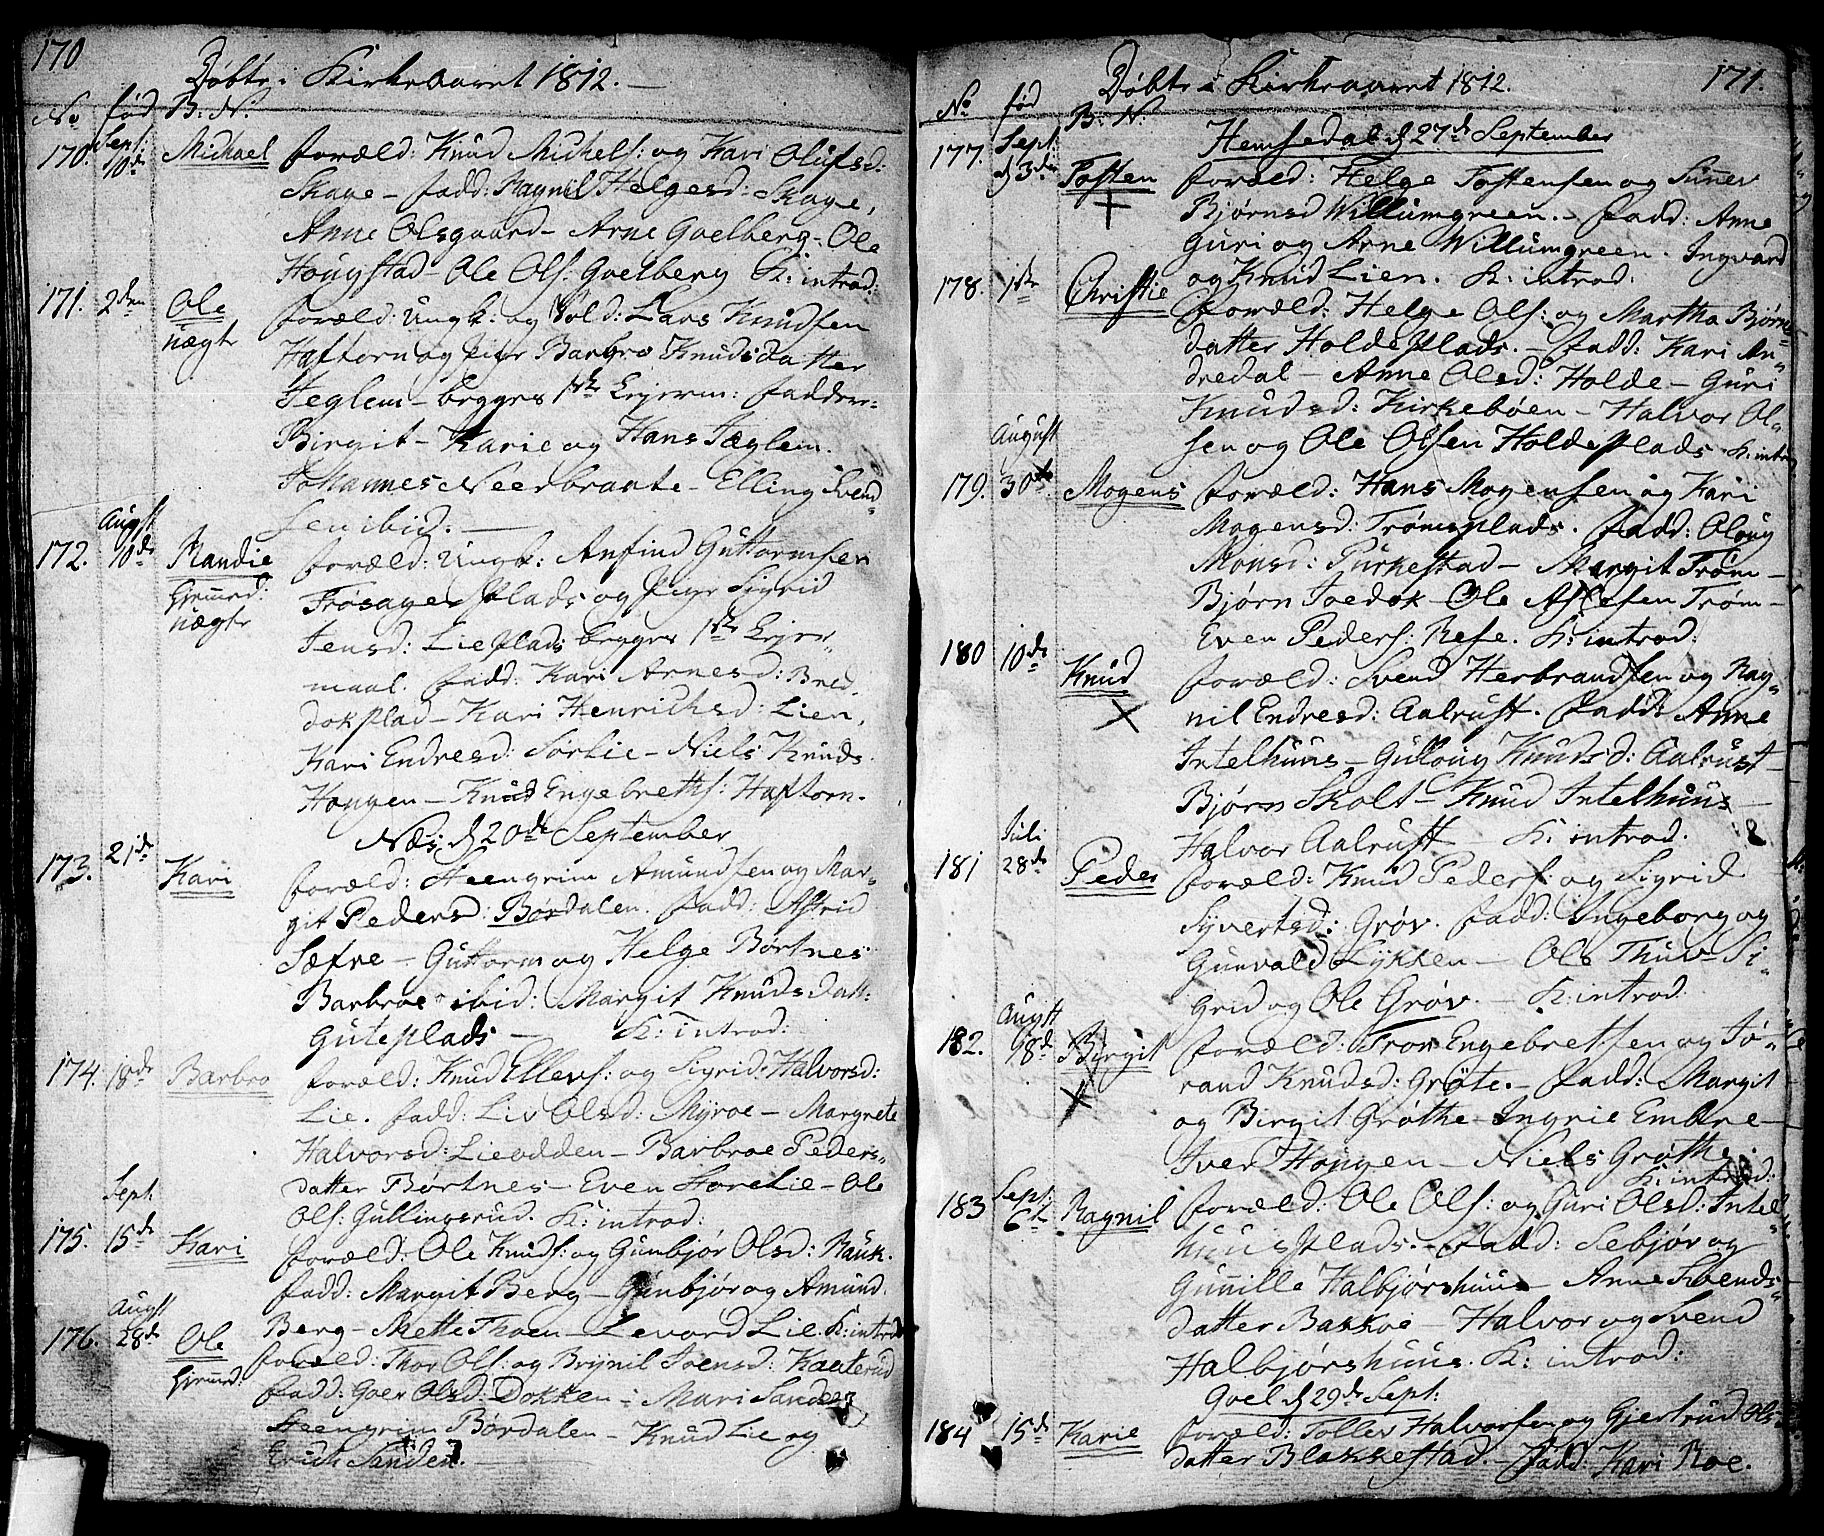 170
Døbte i Kirkeaaret 1812. —
No fød B. N.
170. Sept: 10de Michael foræld: Knud Michels: og Kari Olufsd:
Skage — fadd: Ragnil Helgesd: Skage,
Anne Olsgaard — Arne Goelberg — Ole
Hougstad — Ole Ols: Goelberg K: introd:
171. 2den Ole foræld: Ungk: og Sold: Lars Knudsen
nægte Haftorn og pier Barbro Knudsdatter
Jeglem — begges 1ste Lejerm: Faddere:
Birgit — Karie og Hans Jæglem.
Johannes Neerbraate — Elling Svend=
sen ibid. —
172. Augst 10de Randie foræld: Ungk: Anfind Guttormsen
Grund: Trøsager Plads og pige Sigrid
nægte Jensd: Lieplads begges 1ste Lejer=
maal. fadd: Kari Arnesd: Bred=
dokplad — Kari Henrichsd: Lien,
Kari Endresd: Sørlie — Niels Knuds
Hougen — Knud Engebreths: Haftorn.
Næs d 20de September
173. 21de Kari foræld: Steengrim Amundsen og Mar=
git Pedersd: Børdalen. fadd: Astrid
Sæfre — Guttorm og Helge Børtnes
Barbroe ibid: Margit Knudsdatt:
Guteplads — K: introd:
174. 18de Barbro foræld: Knud Ellevs: og Sigrid Halvorsd:
Lie. fadd: Liv Olsd: Myroe — Margrete
Halvorsd: Lieodden — Barbroe Peders=
datter Børtnes — Even Storelie — Ole
Ols: Gullingsrud. K: introd:
175. Sept: 15de Kari foræld: Ole Knuds: og Gunbjør Olsd: Rauk.
fadd: Margit Berg — Gunbjør og Amund
Berg — Mette Thoen — Levord Lie. K: introd
176. Augst 28de Ole foræld: Thor Ols: og Brynil Svensd: Kaaterud
Grund: fadd: Goer Olsd: Dokken — Mari Sanden
Steengrim Børdalen — Knud Lie og
Erich Sanden. —
171.
Døbte i Kirkeaaret 1812.
No fød B. N:
Hemsedal d 27de September
177. Sept: d 3de Tosten foræld: Helge Tostensen og Sunnev
Bjørnsd Willumgreen. — fadd: Anne
Guri og Arne Willumgreen. Ingvard
og Knud Lien. K: introd.
178. 1ste Christie foræld: Helge Ols: og Martha Bjørns=
datter Holdeplads. — fadd: Kari An=
dredal — Anne Olsd: Holde — Guri
Knudsd: Kirkebøen — Halvor Ol=
sen og Ole Olsen Holdeplads. K: introd
179. August 30te Mogens foræld: Hans Mogensen og Kari
Mogensd: Trømsplads. fadd: Oloug
Monsd: Purkestad — Margit Trøm —
Bjørn Joedok — Ole Aslesen Trøm —
Even Peders: Rese. K: introd:
180 10de Knud foræld: Svend Herbrandsen og Rag=
nil Endresd: Aalrust. fadd: Anne
Intelhuus — Gulloug Knudsd: Aalrust —
Bjørn Skolt — Knud Intelhuus —
Halvor Aalrust — K: introd.
181 Juli 28de Peder foræld: Knud Peders: og Sigrid
Syvertsd: Grøv. fadd: Ingeborg og
Gunvald Lykken — Ole Thuv — Si=
grid og Ole Grøv. — K: introd.
182. Augst 18de Birgit foræld: Tron Engebretsen og Jø=
rand Knudsd: Grøte. — fadd: Margit
og Birgit Grøthe — Ingrie Embre —
Iver Hougen — Niels Grøthe.
K: introd:
183 Sept: 6te Ragnil foræld: Ole Ols: og Guri Olsd: Intel=
huusplads. — fadd: Sebjør og
Gunnille Halbjørshuus — Anne Svends=
datter Bakkoe — Halvor og Svend
Halbjørshuus. K: introd:
Goel d 29de Sept:
184 15de Karie foræld: Tollev Halvorsen og Gjertrud Ols=
datter Blakkestad. — fadd: Kari Roe.